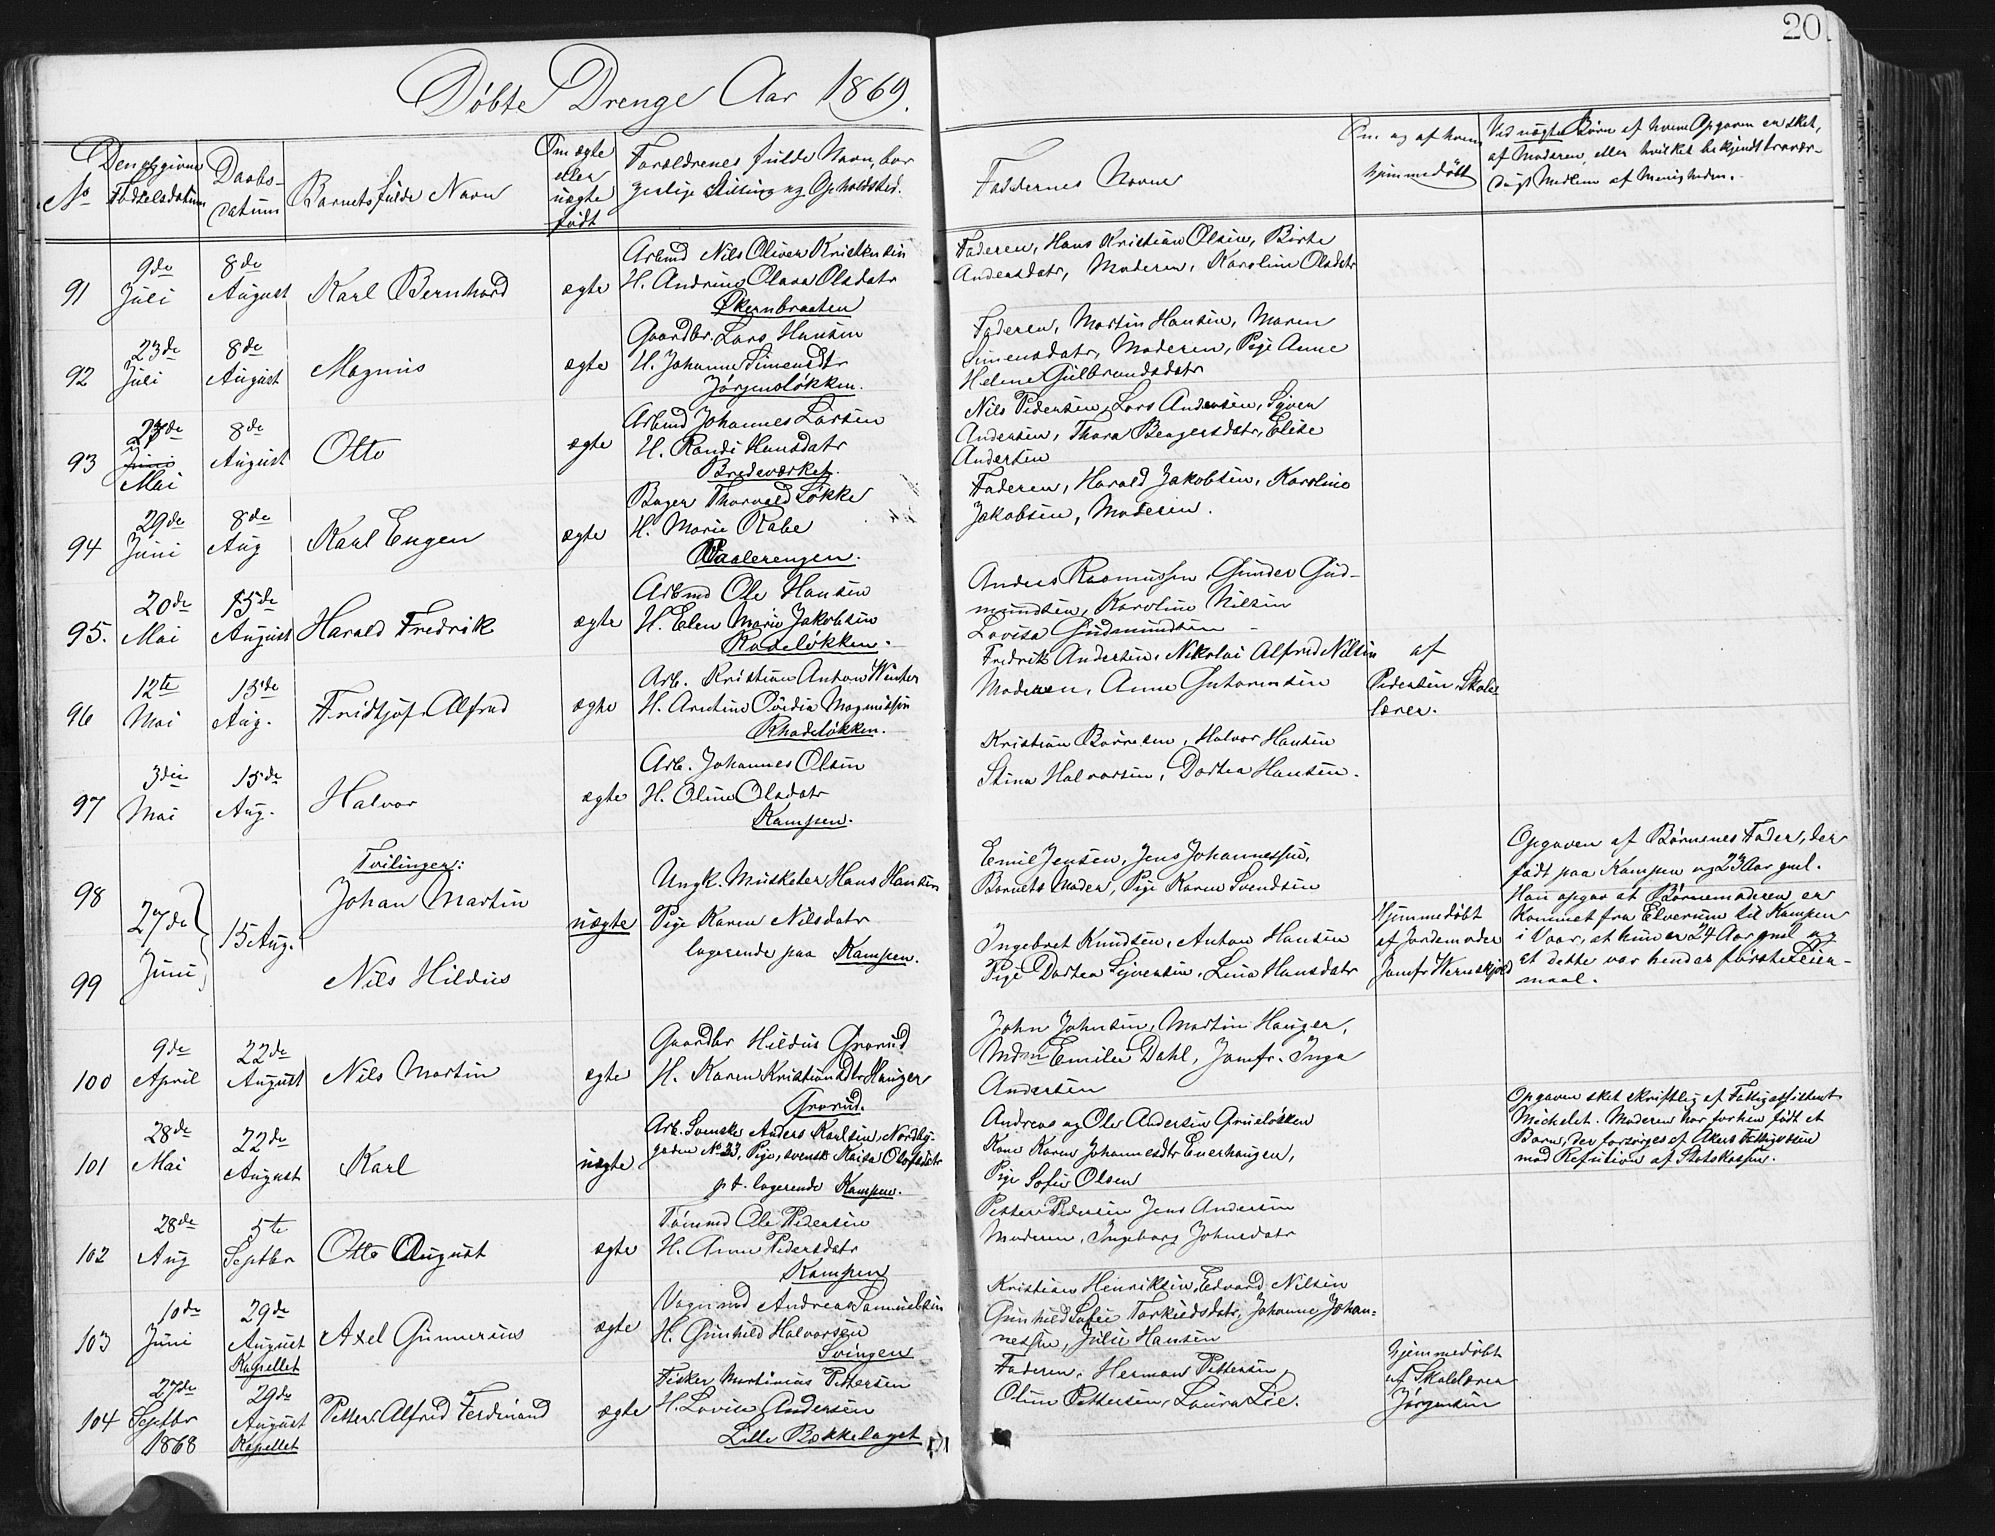 20.
Døbte Drenge Aar 1869.
No
Den opgivne Fødselsdatum
Daabs-datum
Barnets fulde Navn
Om ægte eller uægte født
Forældrenes fulde Navn, bor
gerlige Stilling og Opholdsted.
Faddernes Navne
Om og af hvem hjemmedøbt
Ved uægte Børn af hvem Opgaven er sket,
af Moderen, eller hvilket bekjendt trovær-
digt Medlem af Menigheden.
91
9de Juli
8de August
Karl Bernhard
ægte
Arbmd Nils Oliver Kristensen
H. Andrine Olava Olsdatr
Økernbraaten
Faderen, Hans Kristian Olsen, Birte
Andersdatr, Moderen, Karoline Olsdatr
92
23de Juli
8de August
Magnus
ægte
Gaardbr. Lars Hansen
H. Johanne Simensdtr
Jørgensløkken.
Faderen, Martin Hansen, Maren
Simensdatr, Moderen, Pige Anne
Helene Gulbrandsdatr
93
23de
Juni
Mai
8de August
Otto
ægte
Arbmd Johannes Larsen
H. Randi Hansdatr
Bredeværket.
Nils Pedersen, Lars Andersen, Syver
Andersen, Thora Bengersdatr, Elise
Andersen
94
29de Juni
8de Aug
Karl Eugen
ægte
Bager Thorvald Løkke
H. Marie Rabe
Vaalerengen.
Faderen, Harald Jakobsen, Karoline
Jakobsen, Moderen.
95.
20de Mai
15de August
Harald Fredrik
ægte
Arbmd Ole Hansen
H. Elen Marie Jakobsen
Rodeløkken.
Anders Rasmussen, Gunder Gud-
mundsen, Karoline Nilsen
Lovisa Gudmundsen
96
12te Mai
15de Aug.
Fridtjof Alfred
ægte
Arb. Kristian Anton Winter
H. Magnussen
Rhodeløkken.
Fredrik Andersen, Nikolai Alfred Nilsen
Moderen, Anne Gutormsen
af
Pedersen, Skole
lærer.
97
3die Mai
15de Aug.
Halvor
ægte
Arb. Johannes Olsen
H. Oline Olsdatr
Kampen.
Kristian Børresen, Halvor Hansen
Stina Halvorsen, Dortea Hansen.
98
99
27de Juni
15 Aug.
Tvilinger:
Johan Martin
Nils Hildus
uægte
Ungk. Musketer Hans Hansen
Pige Karen Nilsdatr
logerende paa Kampen.
Emil Jensen, Jens Johannessen,
Barnets Moder, Pige Karen Svendsen
Ingebret Knudsen, Anton Hansen
Pige Dortea Syversen, Lina Hansdatr
Hjemmedøbt
af Jordemoder
Jomfr Wernskjold
Opgaven af Børnenes Fader, der
født paa Kampen og 23 Aar gml.
Han opgav at Børnemoderen er
kommet fra Elverum til Kampen
i Vaar, at hun er 24 Aar gml og
at dette var hendes første Leier-
maal.
100
9de April
22de August
Nils Martin
ægte
Gaardbr Hildus Grorud
H. Karen Kristiansdtr Hauger
Grorud.
John Johnsen, Martin Hauger,
Mdm Emilie Dahl, Jomfr. Inga
Andersen
101
28de Mai
22de August
Karl
uægte
Arb. Svenske Anders Karlsen, Nordby-
gaden No 33, Pige, svensk Kaisa Olofsdtr
p.t. logerende Kampen.
Andreas og Ole Andersen Grüneløkken
Kone Karen Johannesdtr Enerhaugen,
Pige Sofie Olsen
Opgaven sket skriftlig af Fattigassistent
Michelet. Moderen har forhen født et
Barn, der forsørges af Akers Fattigvæsen
mod Refusion af Statskassen.
102
28de Aug
5te Septbr
Otto August
ægte
Tømmd Ole Pedersen
H. Anne Pedersdatr
Kampen
Petter Pedersen Jens Andersen
Moderen, Ingeborg Johnsdatr
103
10de Juni
29de August
Kapellet
Axel Gunnerius
ægte
Vognmd Andreas Samuelsen
H. Gunhild Halvorsen
Svingen
Kristian Henriksen, Edvard Nilsen
Gunhild Sofie Torkildsdatr, Johanne Johan-
nessen, Julie Hansen
104
27de Septbr 1868
29de August
Kapellet
Petter Alfred Ferdinand
ægte
Fisker Martinius Pettersen
H. Lovise Andersen
Lille Bækkelaget
Faderen, Herman Pettersen,
Oline Pettersen, Laura Lie.
hjemmedøbt
af Skolelærer
Jørgensen